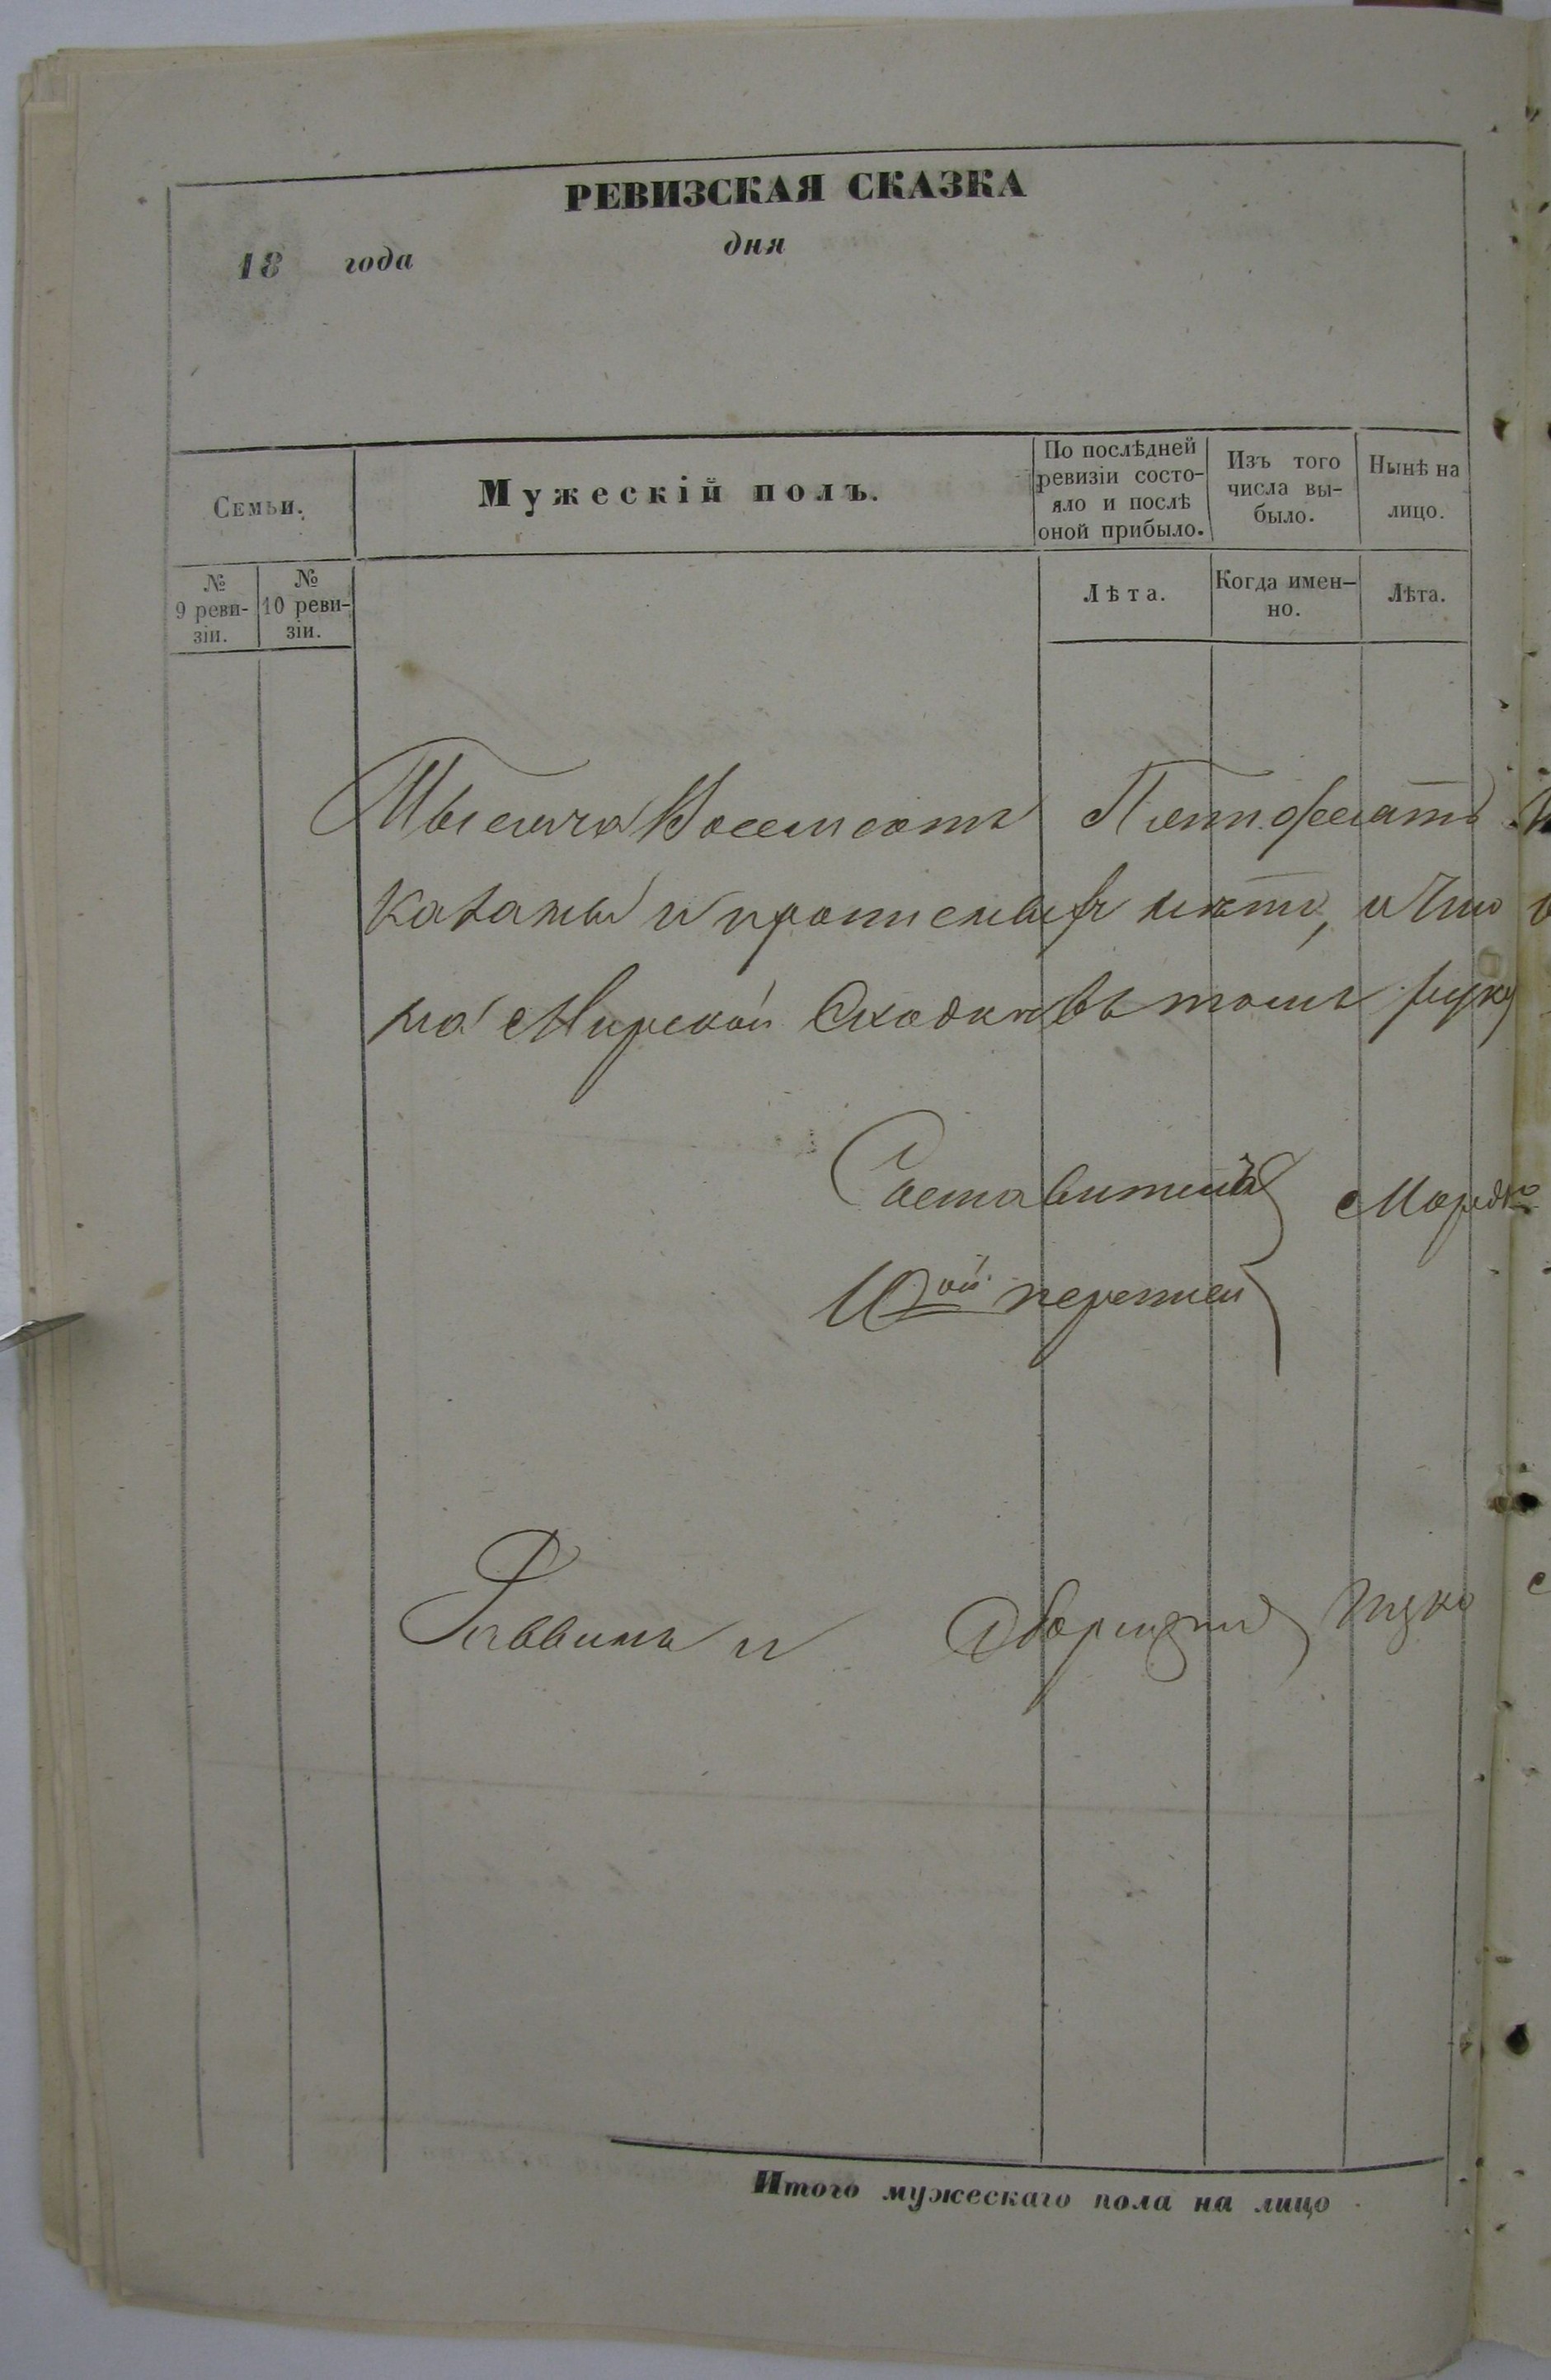 РЕВИЗСКАЯ СКАЗКА
18 года дня
Семьи.
Мужескій полъ.
По послѣдней ревизіи состо-
яло и послѣ оной прибыло.
Изъ того числа вы-
было.
Нынѣ на лицо.
№ 9 реви-
зіи.
№ 10 реви-
зіи.
Лѣта.
Когда имен-
но.
Лѣта.
Тысяча Восемсотъ Пятдесятъ
казаты и прописныхъ нѣтъ, и что
на Мирской Сходкѣ въ томъ руку
Составитель Мордко
10ой переписи
Раввинъ и Ицко
Итого мужескаго пола на лицо